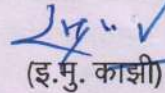 (इ.मु. काझी)